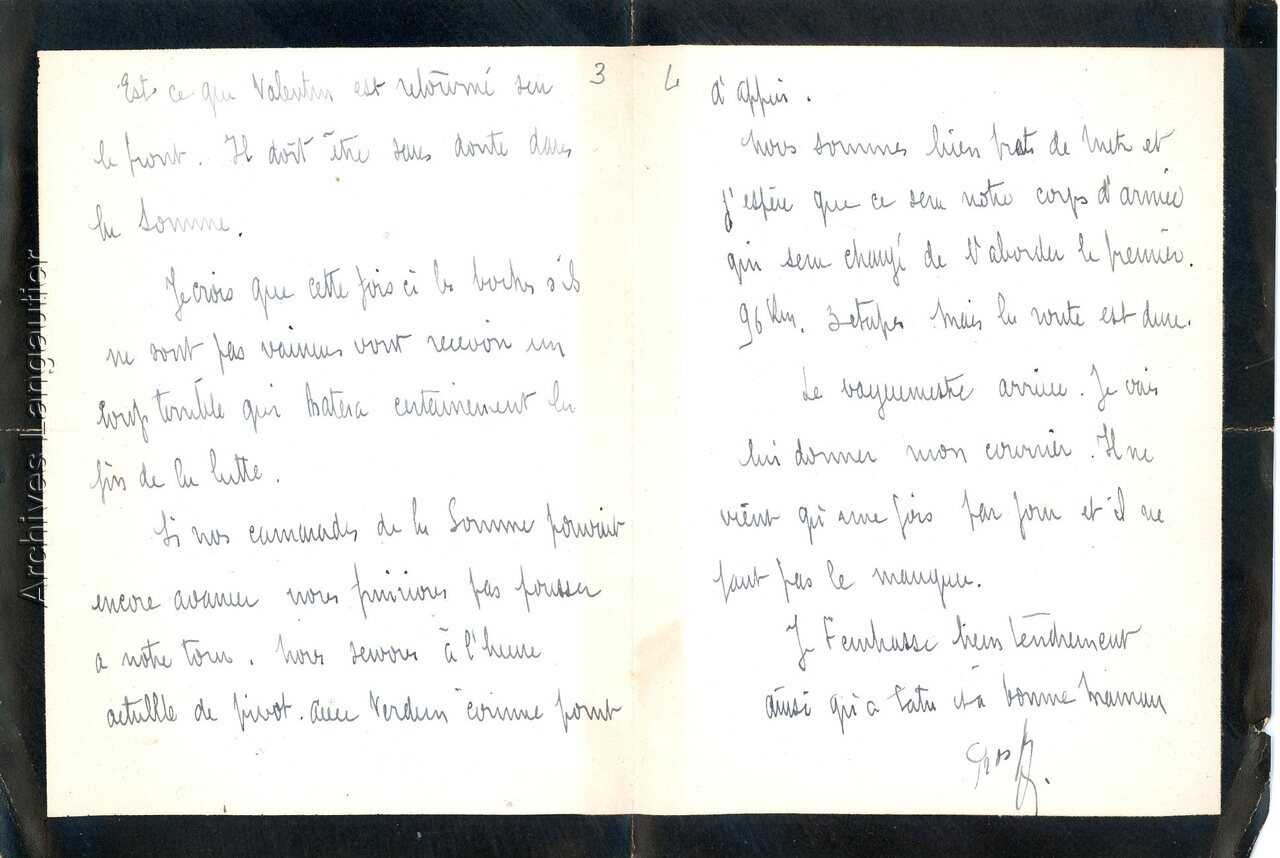 3
Est ce que Valentin est retourné sur
le front. Il doit être sans doute dans
la Somme.
Je crois que cette fois ci les boches s'ils
ne sont pas vaincus vont recevoir un
coup terrible qui hatera certainement la
fin de la lutte.
Si nos camarades de la Somme pouvait
encore avancer nous finirions par pousser
a notre tour. Nous servons à l'heure
actuelle de pivot. avec Verdun comme point
4
d'appui.
Nous sommes bien près de Metz et
j'espère que ce sera notre corps d'armée
qui sera chargé de l'aborder le premier.
96 Km. 3 etapes mais la route est dure.
Le vaguemestre arrive. Je vais
lui donner mon courrier. Il ne
vient qu'une fois par jour et il ne
faut pas le manquer.
Je t'embrasse bien tendrement
ainsi qu'a tata et à bonne Maman
Archives Langautier